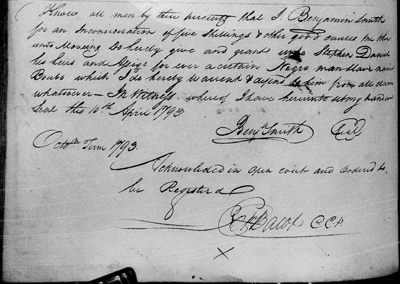 Know all men by these presents that I Benjamin Smith
for an Inconsideration of five Shillings & other good causes me there
unto Moveing Do hereby give and grant unto Stephen Daniel
his heirs and for ever a certain Negro man slave named
which I do hereby warrent & defend to him from all
whatsoever In Witness whereof I have hereunto set my hand and
Seal this 10th April 1793
Benj. Smith Seal
Octobr. Term 1793
Acknowledged in open court and Ordered to
be Registered
CCP